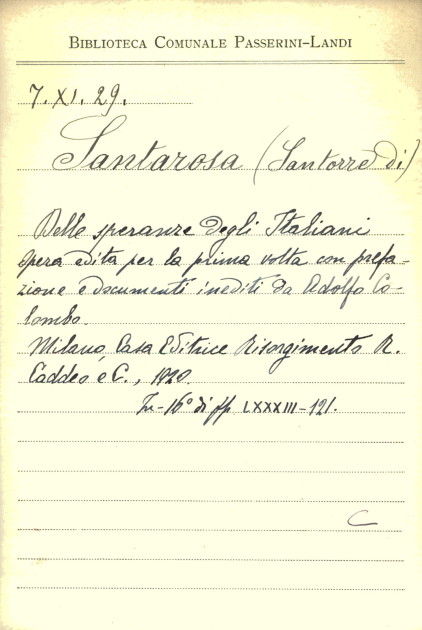 BIBLIOTECA COMUNALE PASSERINI-LANDI
7. XI. 29.
Santarosa (Santorre di)
Delle speranze degli Italiani
opera edita per la prima volta con prefa-
zione e documenti inediti da Adolfo Co-
lombo.
Milano, Casa Editrice Risorgimento R.
Caddeo e C., 1920.
In-16° di pp LXXXIII-121.
C